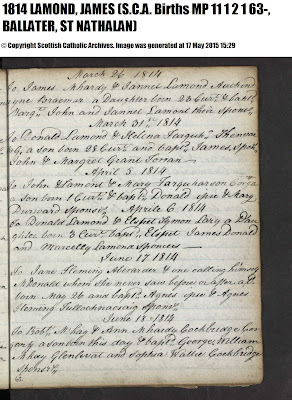 1814 LAMOND, JAMES (S.C.A. Births MP 11 1 2 1 63-,
BALLATER, ST NATHALAN)
© Copyright Scottish Catholic Archives. Image was generated at 17 May 2015 15:29
March 26 1814
To James Mhardy & Jannet Lamond
Braemar a Daughter born 23 Curt & bapt
Marg John and Jannet Lamond their Sponrs
March 31st 1814
To Donald Lamond & Helena Farquhr
a son born 28 Curt and bapt James, Spok
John & Margret Grant
April 5. 1814
To John Lamont & Mary Farquharson
a son born 1 Curt & bapt Donald spse & Mary
Durward Sponsrs Aprile 6 1814
To Donald Lamond & Elspet Thomson Lary a Dau
ghter born 3 Curt bapt Elspet James Donald
and Marcelly Lamond Sponcers
June 17 1814
To Jane Fleming Aberarder & one calling himself
McDonald whom she never saw before or after a
born May 26 and bapt Agnes spse & Agnes
Fleming Tullochnacraig Sponsrs
June 18 - 1814
To Robt McKay & Ann Mhardy Cockbridge
a son born this day & bapt George William
McKay and Sophia Wattie Cockbridge
Sponsrs